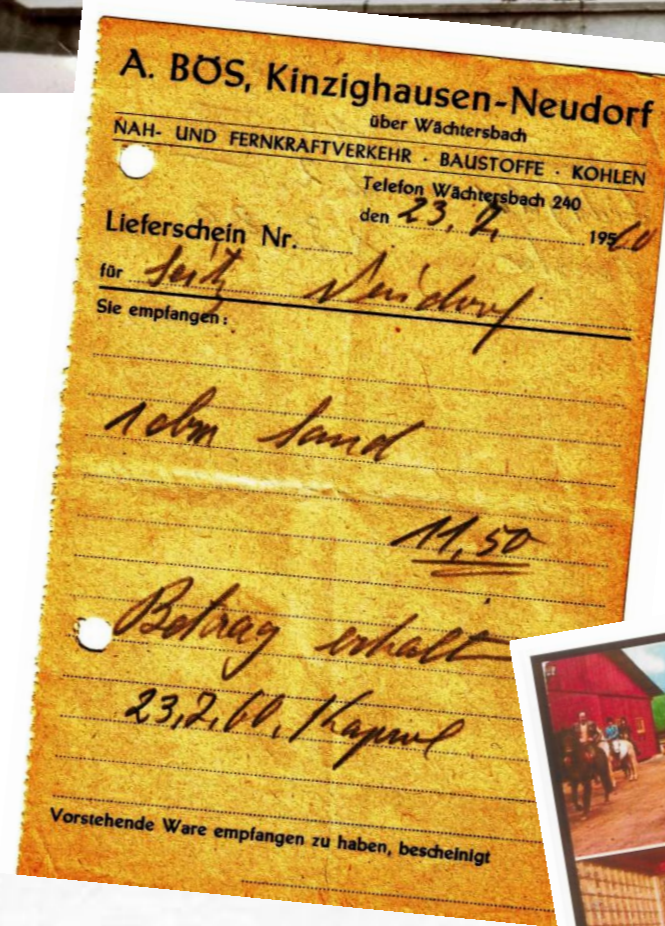 A. BÖS, Kinzighausen-Neudorf
über Wächtersbach
NAH- UND FERNKRAFTVERKEHR · BAUSTOFFE · KOHLEN
Telefon Wächtersbach 240
den 23. 7. 1960
Lieferschein Nr.
für Seitz Neudorf
Sie empfangen:
1 cbm Sand
11,50
Betrag erhalt
23,7,60,
Vorstehende Ware empfangen zu haben, bescheinigt